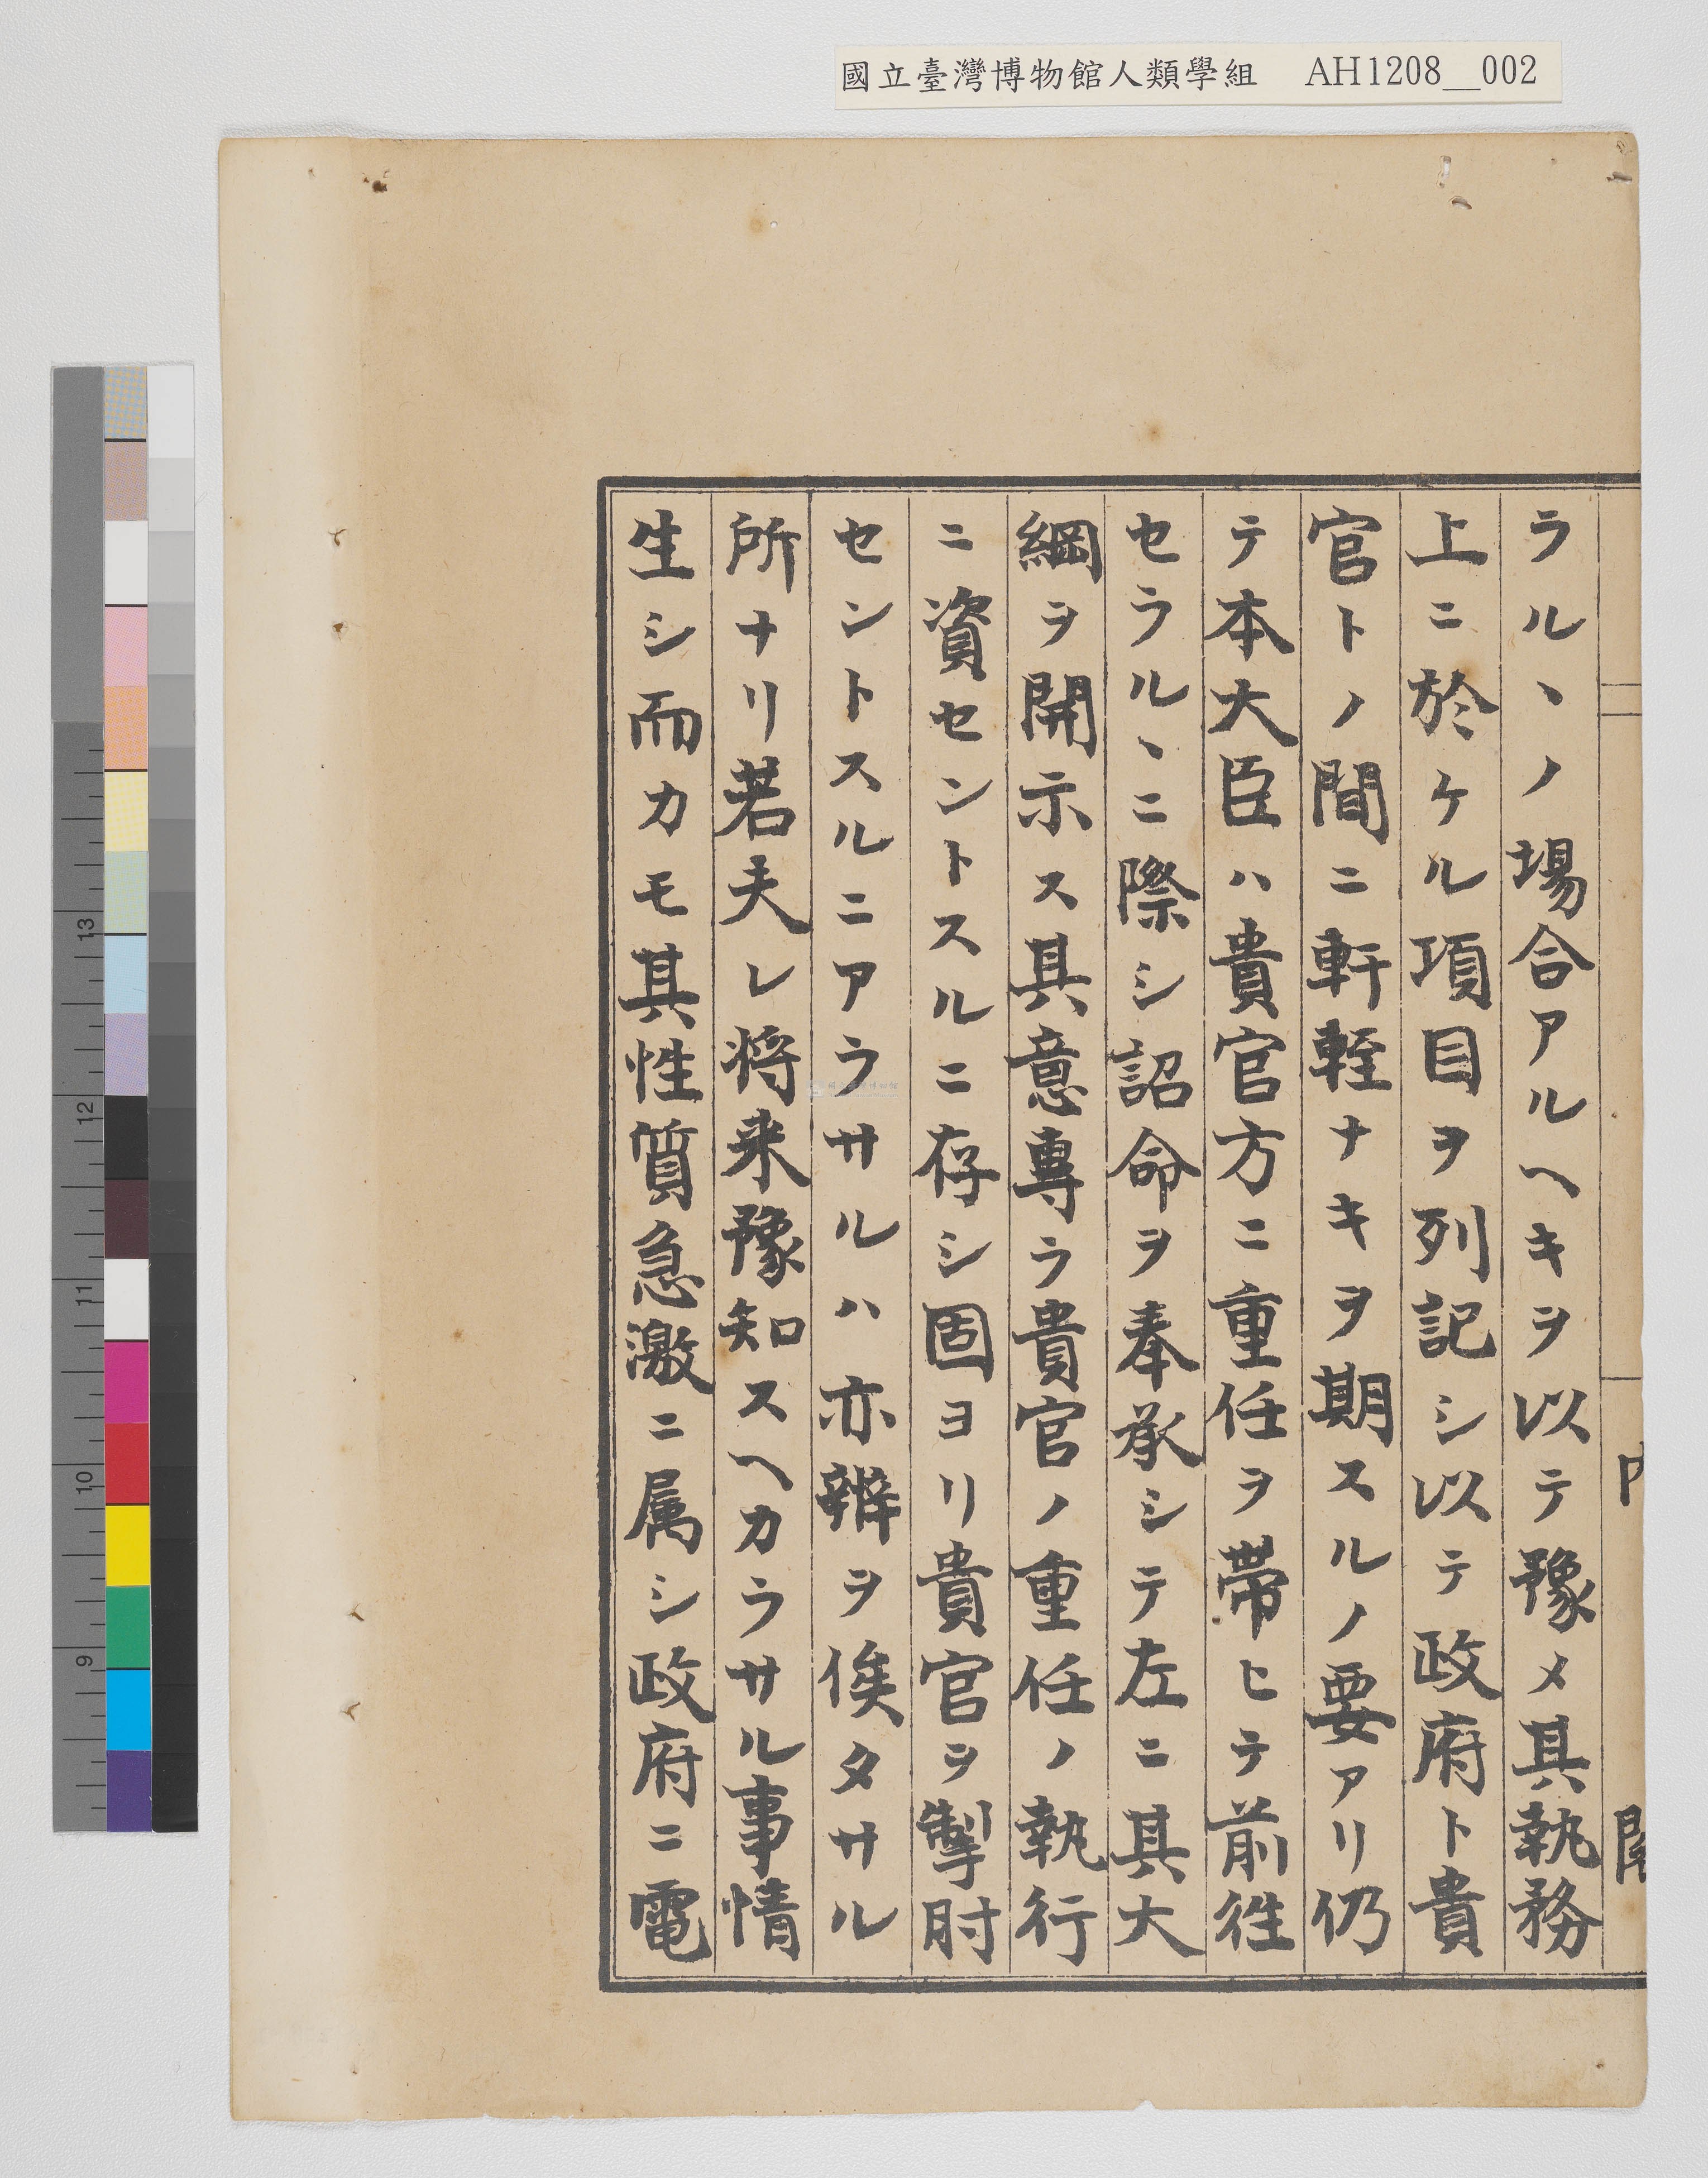 國立臺灣博物館人類學組 AH1208__002
ラルヽノ場合アルヘキヲ以テ豫メ其執務
上ニ於ケル項目ヲ列記シ以テ政府ト貴
官トノ間ニ軒輊ナキヲ期スルノ要アリ仍
テ本大臣ハ貴官方ニ重任ヲ帯ヒテ前往
セラルヽニ際シ詔命ヲ奉承シテ左ニ其大
綱ヲ開示ス其意專ラ貴官ノ重任ノ執行
ニ資セントスルニ存シ固ヨリ貴官ヲ掣肘
セントスルニアラサルハ亦辨ヲ俟タサル
所ナリ若夫レ将来豫知スヘカラサル事情
生シ而カモ其性質急激ニ属シ政府ニ電
13
12
11
10
9